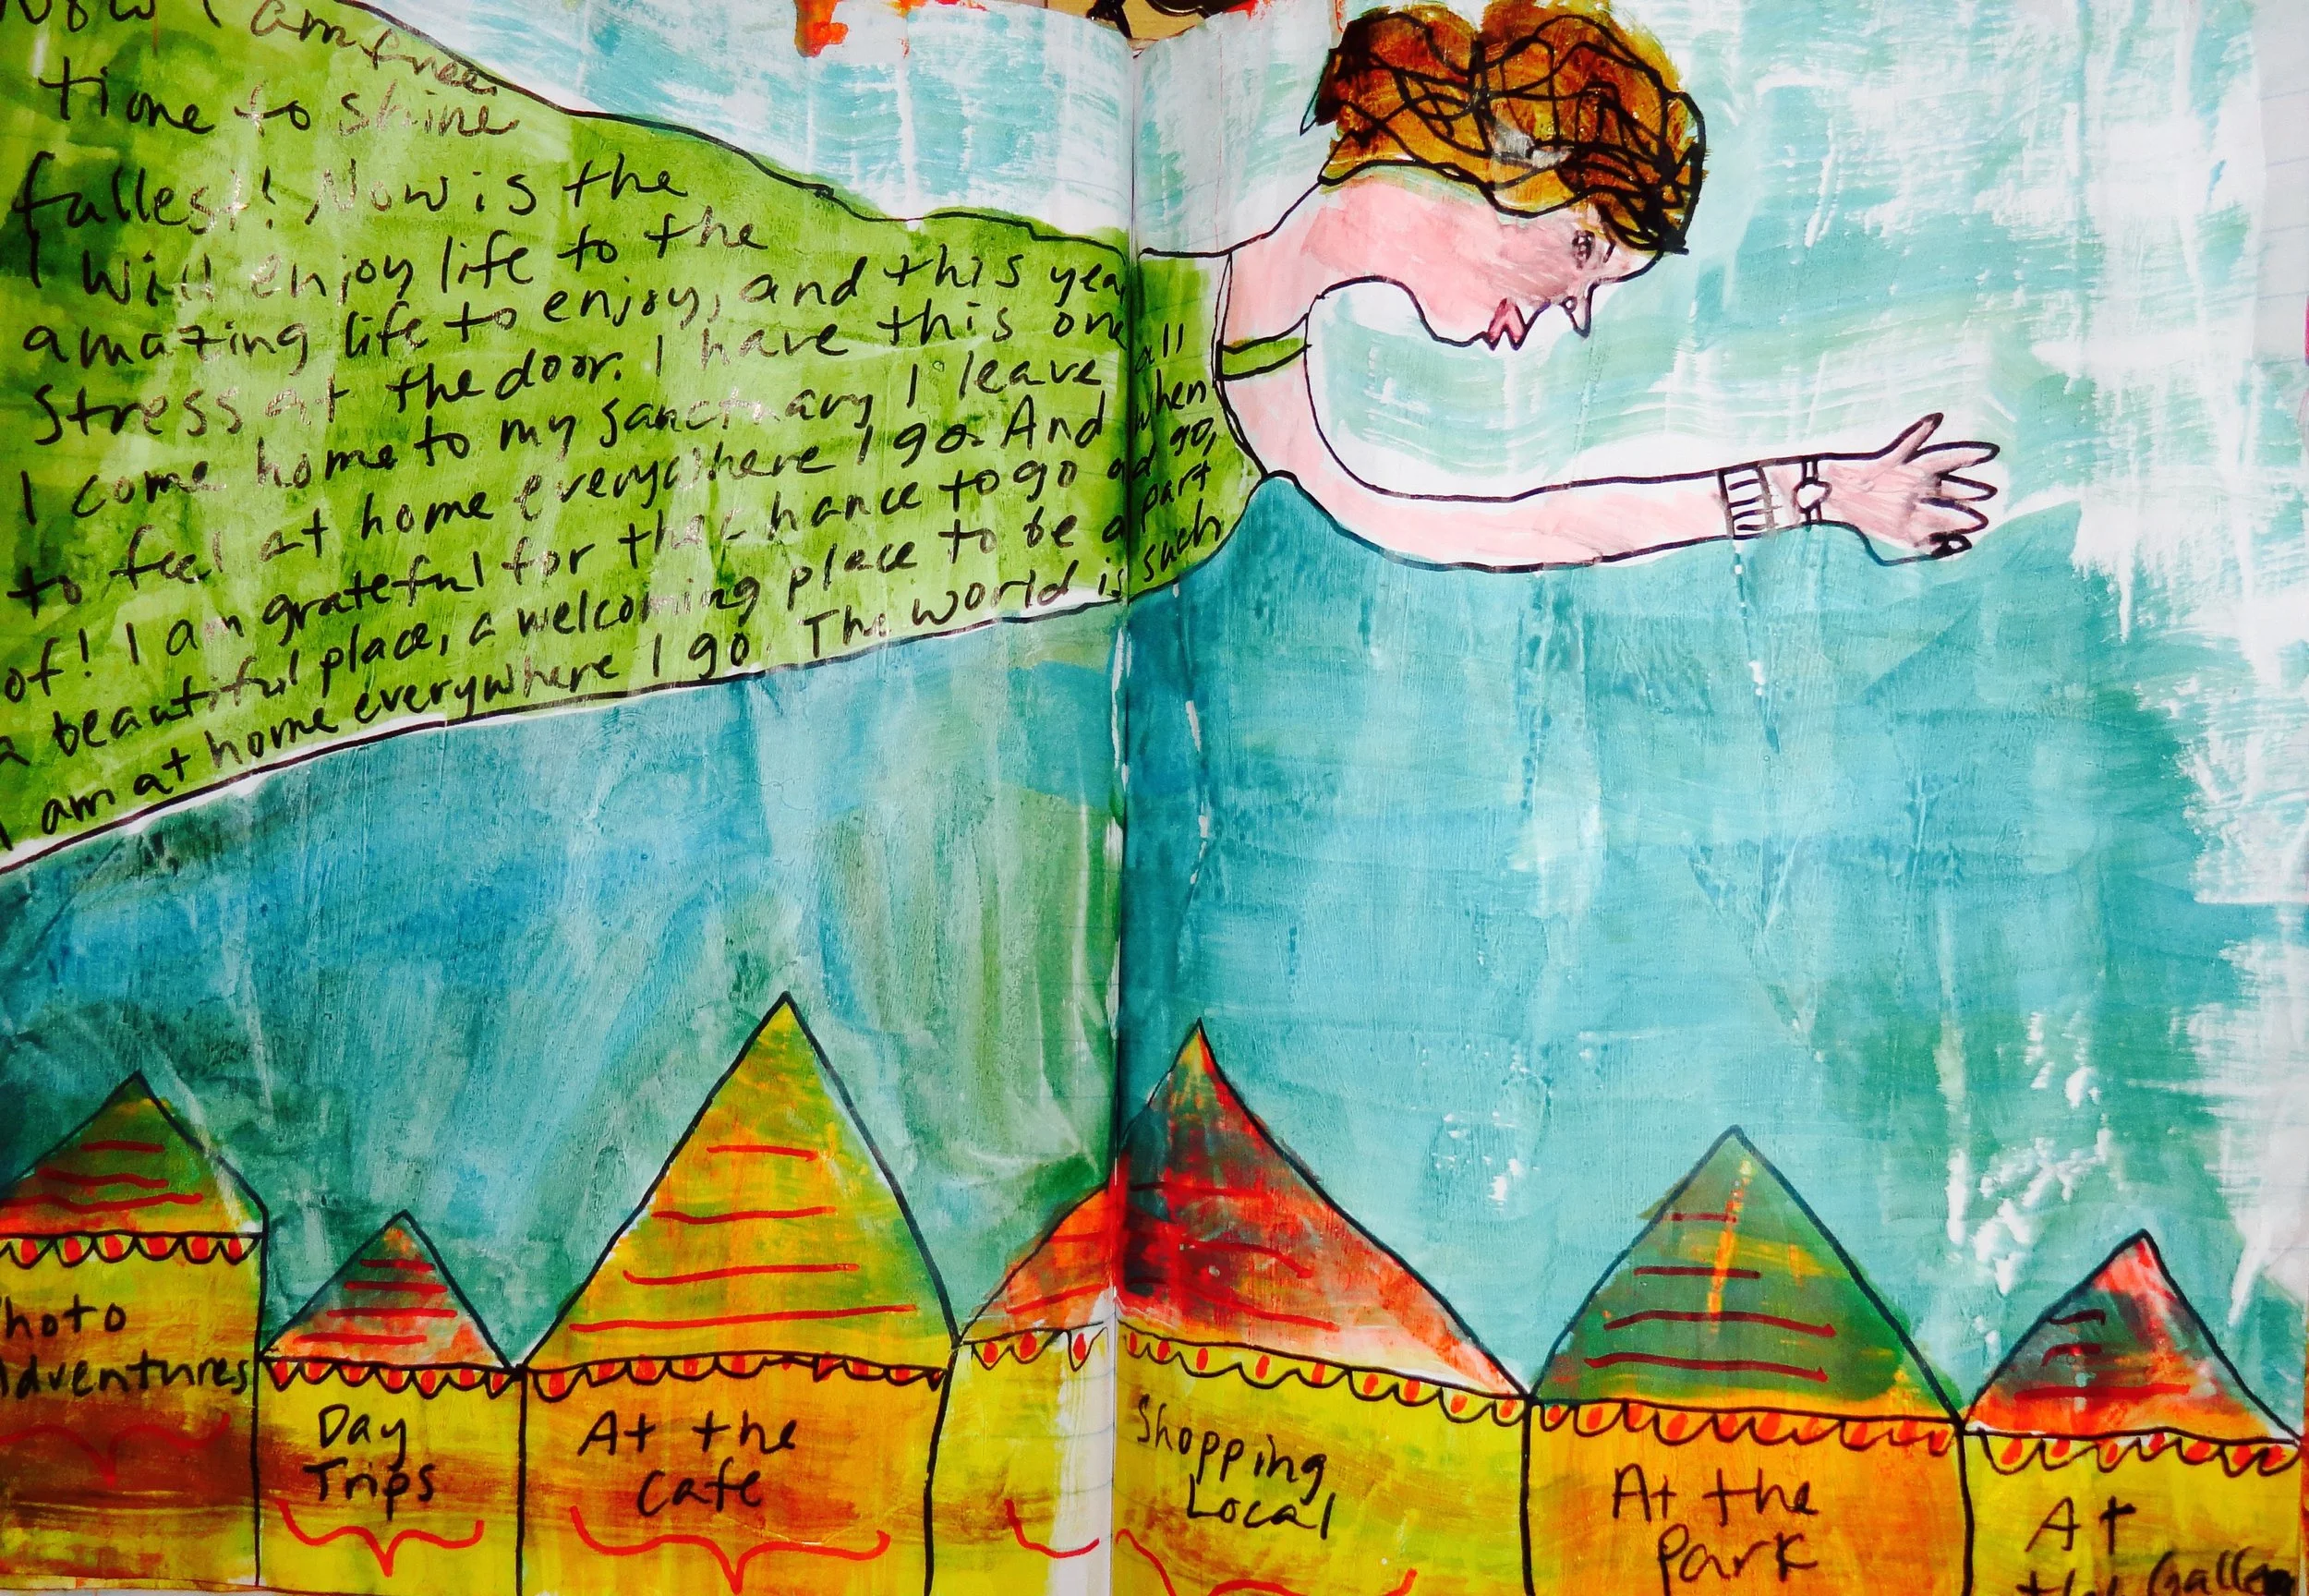 Now I am free.
time to shine
fullest! Now is the
I will enjoy life to the
amazing life to enjoy, and this year
stress at the door. I have this one
I come home to my sanctuary I leave all
to feel at home everywhere I go. And when
of! I am grateful for the chance to go ad go,
a beautiful place, a welcoming place to be a part
I am at home everywhere I go. The world is such
hoto
dventures
Day
Trips
At the
Cafe
Shopping
Local
At the
Park
At
the